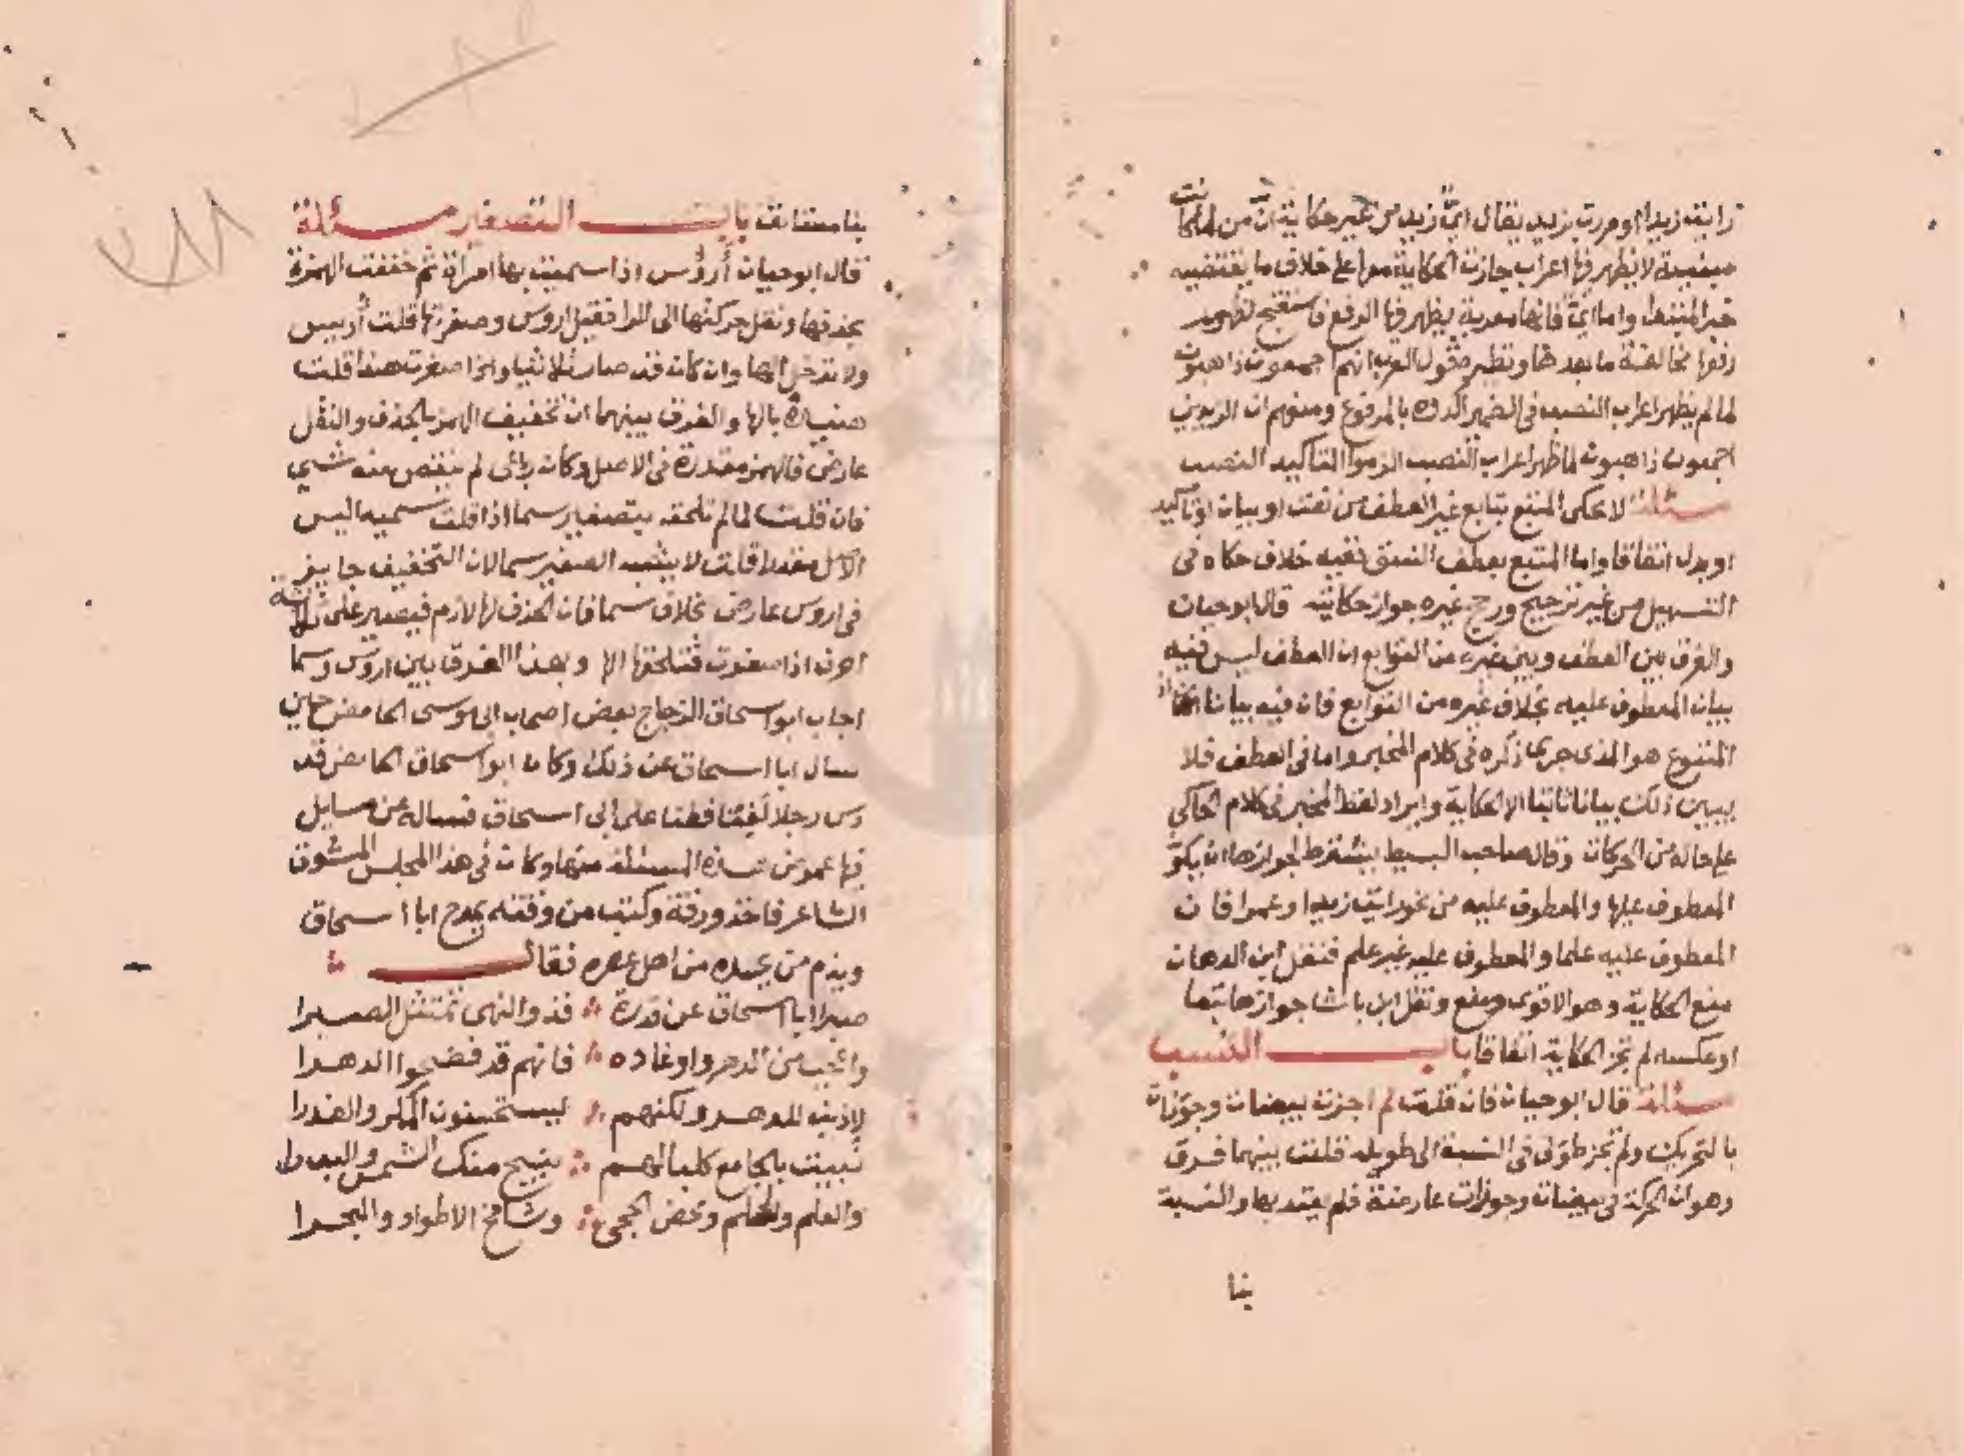 رايته زيدا او مررت بزيد يقال اىّ زيد من غير حكاية ان من لما كانت
مبنية لا يظهر فيها اعراب جازت الحكاية معها على خلاف ما يقتضيه
خبر المبتدا واما اىّ فانها معربة يظهر فيها الرفع فاستقبح لظهور
رفعها مخالفة ما بعدها ونظيره قول العرب انهم اجمعون ذاهبون
لما لم يظهر اعراب النصب فى الضمير اكدوه بالمرفوع ومنهم ان الزيدين
اجمعون ذاهبون لما ظهر اعراب النصب الزموا التاكيد النصب
مسئلة لا يحكى المتبع بتابع غير العطف من نعت او بيان او تاكيد
او بدل اتفاقا واما المتبع بعطف النسق ففيه خلاف حكاه فى
التسهيل من غير ترجيح ورجح غيره جواز حكايته قال ابو حيان
والفرق بين العطف وبين غيره من التوابع ان العطف ليس فيه
بيان المعطوف عليه بخلاف غيره من التوابع فان فيه بيانا ان
المتبوع هو الذى جرى ذكره فى كلام المخبر واما فى العطف فلا
يبين ذلك بيانا ثابتا الا الحكاية وايراد لفظ المخبر فى كلام الحاكى
على حاله من الحركات وقال صاحب البسيط يشترط لجوازها ان يكون
المعطوف عليها والمعطوف عليه من نحو رايت زيدا وعمرا فان
المعطوف عليه علما والمعطوف عليه غير علم فنقل ابن الدهان
منع الحكاية وهو الاقوى ومنع ونقل ابن باشا جوازها تبعا
او عكسه لم تجز الحكاية اتفاقا باب النسب
مسئلة قال ابو حيان فان قلت لم اجزت بيضات وجوزات
بالتحريك ولم تجز طولى فى النسبة الى طويله قلت بينهما فرق
وهو ان الحركة فى بيضات وجوزات عارضة فلم يعتد بها والنسبة
بنا
بنا مستانف باب التصغير مسئلة
قال ابو حيان أرؤس اذا سميت بها امراة ثم خففت الهمزة
بحذفها ونقل حركتها الى الرا فقيل اروس وصغرتها قلت أريس
ولا تدخل الها وان كان قد صار ثلاثيا واذا صغرت هندا قلت
هنيدة بالها والفرق بينهما ان تخفيف الهمز بالحذف والنقل
عارض فالهمز مقدرة فى الاصل وكانه رباعى لم ينقص منه شيى
فان قلت لما لم تلحقه بتصغير سما اذا قلت سميه اليس
الاصل مقدرا قلت لا يشبه التصغير سما لان التخفيف جايز
فى اروس عارض بخلاف سما فان الحذف لها لازم فيصير على ثلاثة
احرف اذا صغرت فتلحقها الها وبهذا الفرق بين اروس وسما
اجاب ابو اسحاق الزجاج بعض اصحاب ابى موسى الحامض حين
سال ابا اسحاق عن ذلك وكان ابو اسحاق الحامض قد
دس رجلا لقنا فطنا على ابى اسحاق فساله عن مسايل
فيها غموض هذه المسئلة منها وكان فى هذا المجلس المشوق
الشاعر فاخذ ورقة وكتب من وقته يمدح ابا اسحاق
ويذم من يحسده من اهل عصره فقال
صبرا ابا اسحاق عن قدرة فذو النهى يمتثل الصبرا
واعجب من الدهر واوغاده فانهم قد فضحوا الدهرا
لا ذنب للدهر ولكنهم يستحسنون المكر والغدرا
نبيت بالجامع كلبا لهم ينبح منك الشمس والبدرا
والعلم والحلم ومحض الحجى وشامخ الاطواد والبحرا